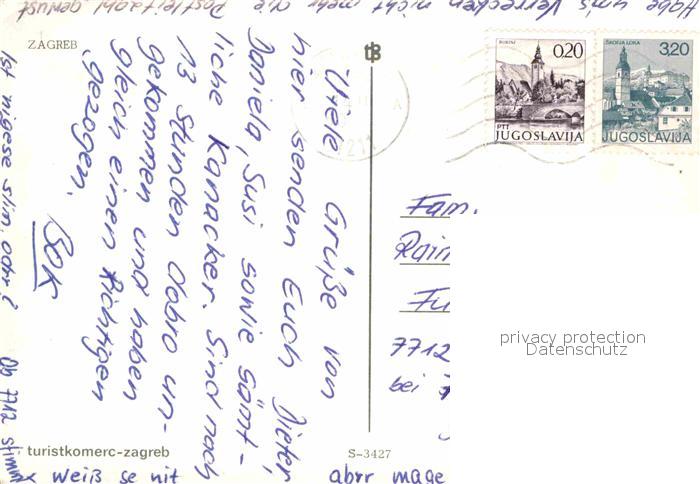 Habe ums Verrecken nicht mehr die Postleitzahl gewusst
ZAGREB
0,20
PTT
JUGOSLAVIJA
ŠKOFJA LOKA
3,20
JUGOSLAVIJA
Viele Grüße von
hier senden Euch Dieter,
Daniela, Susi sowie sämt-
liche Kanacker. Sind nach
13 Stunden dobro un-
gekommen und haben
gleich einen richtigen
gezogen.
BOK
Fam.
Rain
Fu
7712
bei
privacy protection
Datenschutz
turistkomerc-zagreb
S-3427
Ist odr?
Ob 7712 stimm
weiß se nit
abrr mage